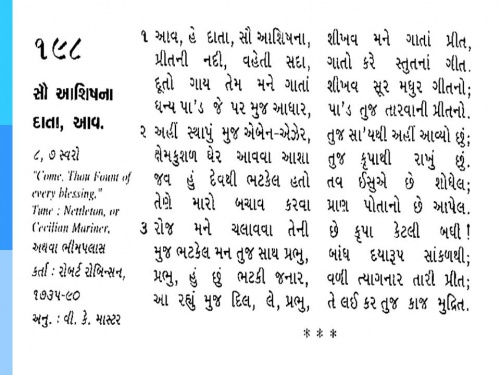 ૧૯૮
સૌ આશિષના
દાતા, આવ.
૮, ૭ સ્વરો
"Come, Thou Fount of
every blessing."
Tune : Nettleton, or
Cecilian Mariner,
અથવા ભીમપલાસ
કર્તા : રોબર્ટ રોબિન્સન,
૧૭૩૫-૯૦
અનુ. : વી. કે. માસ્ટર
૧ આવ, હે દાતા, સૌ આશિષના, શીખવ મને ગાતાં પ્રીત,
પ્રીતની નદી, વહેતી સદા, ગાતો કરે સ્તુતનાં ગીત.
દૂતો ગાય તેમ મને ગાતાં શીખવ સૂર મધુર ગીતનો;
ધન્ય પા'ડ જે પર મુજ આધાર, પા'ડ તુજ તારવાની પ્રીતનો.
૨ અહીં સ્થાપું મુજ એબેન-એઝેર, તુજ સા'યથી અહીં આવ્યો છું;
ક્ષેમકુશળ ઘેર આવવા આશા તુજ કૃપાથી રાખું છું.
જવ હું દેવથી ભટકેલ હતો તવ ઈસુએ છે શોધેલ;
તેણે મારો બચાવ કરવા પ્રાણ પોતાનો છે આપેલ.
૩ રોજ મને ચલાવવા તેની છે કૃપા કેટલી બધી !
મુજ ભટકેલ મન તુજ સાથ પ્રભુ, બાંધ દયારૂપ સાંકળથી;
પ્રભુ, હું છું ભટકી જનાર, વળી ત્યાગનાર તારી પ્રીત;
આ રહ્યું મુજ દિલ, લે, પ્રભુ, તે લઈ કર તુજ કાજ મુદ્રિત.
* * *